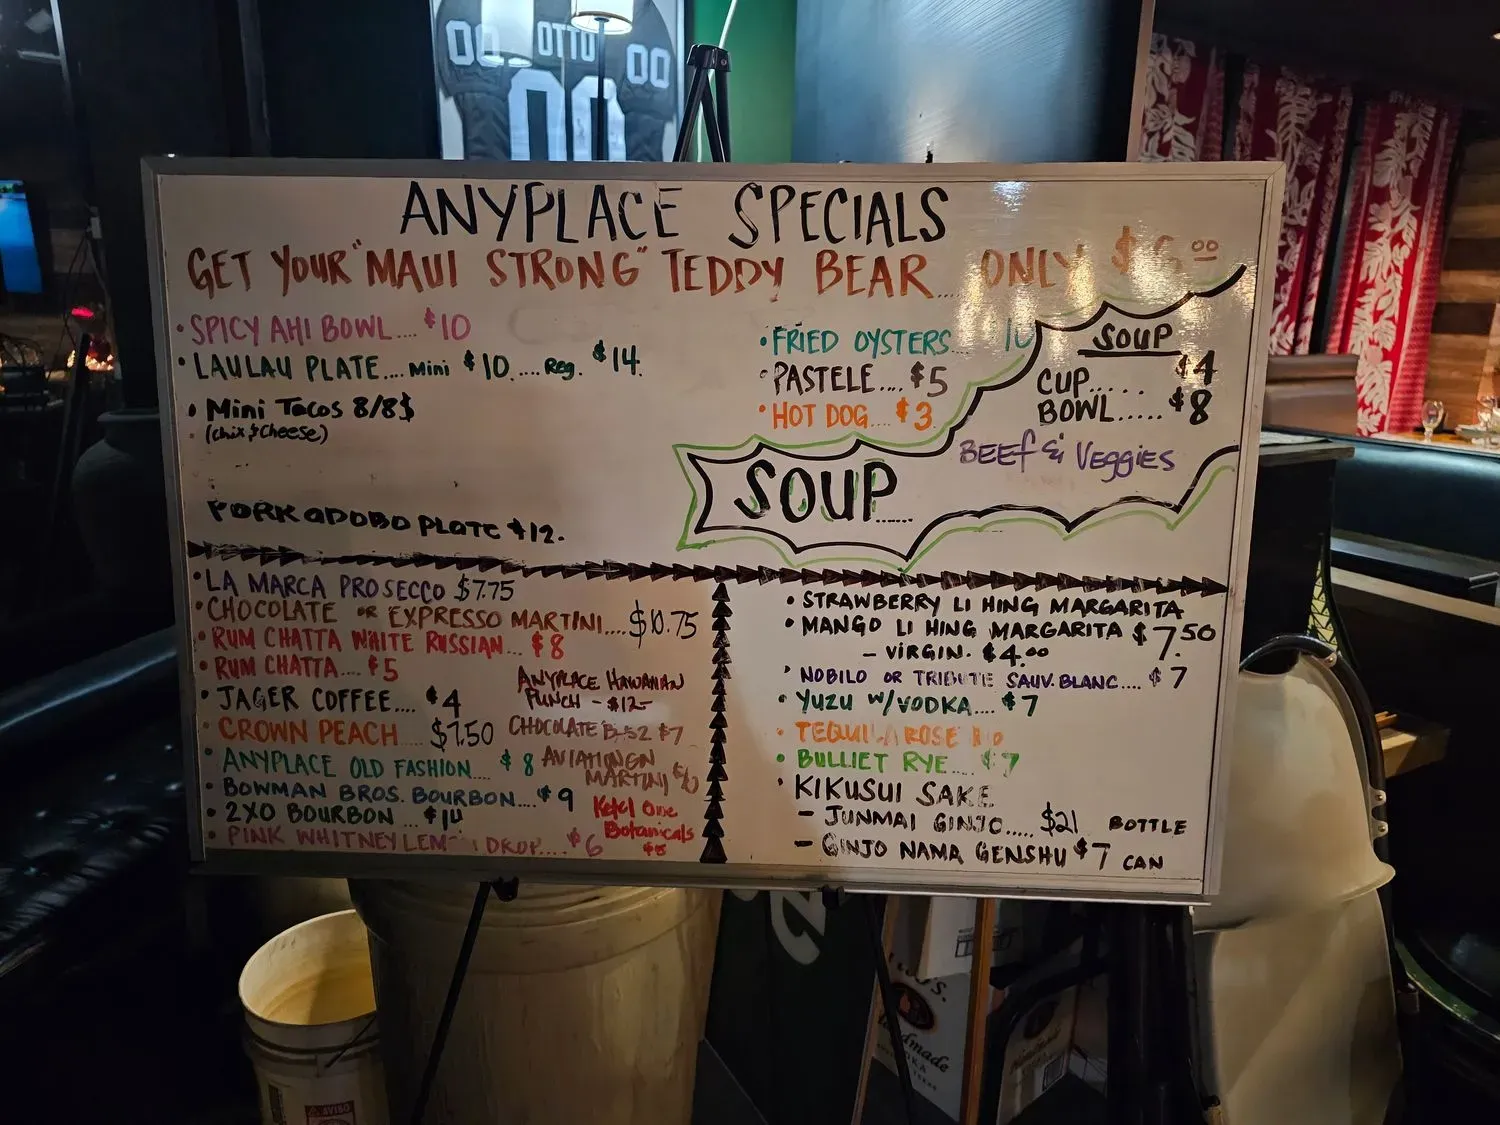 00 OTTO 00
00
ANYPLACE SPECIALS
GET YOUR "MAUI STRONG" TEDDY BEAR... ONLY $6.00
• SPICY AHI BOWL.... $10
• LAULAU PLATE.... Mini $10..... Reg. $14.
• Mini Tacos 8/8$
(Chix & Cheese)
PORK ADOBO PLATE $12.
• FRIED OYSTERS.... 10
• PASTELE.... $5
• HOT DOG.... $3
SOUP
CUP..... $4
BOWL..... $8
BEEF & Veggies
SOUP......
• LA MARCA PROSECCO $7.75
• CHOCOLATE OR EXPRESSO MARTINI.... $10.75
• RUM CHATTA WHITE RUSSIAN... $8
• RUM CHATTA... $5
• JAGER COFFEE.... $4
• CROWN PEACH.... $7.50
• ANYPLACE OLD FASHION.... $8
• BOWMAN BROS. BOURBON.... $9
• 2XO BOURBON ...
• PINK WHITNEY DROP.... $6
ANYPLACE HAWAIIAN
PUNCH - $12-
CHOCOLATE B-52 $7
MARTINI
Ketel One
Botanicals
• STRAWBERRY LI HING MARGARITA
• MANGO LI HING MARGARITA $7.50
- VIRGIN. $4.00
• NOBILO OR TRIBUTE SAUV. BLANC.... $7
• YUZU W/VODKA.... $7
• TEQUILA ROSE
• BULLIET RYE.... $7
• KIKUSUI SAKE
- JUNMAI GINJO..... $21 BOTTLE
- GINJO NAMA GENSHU $7 CAN